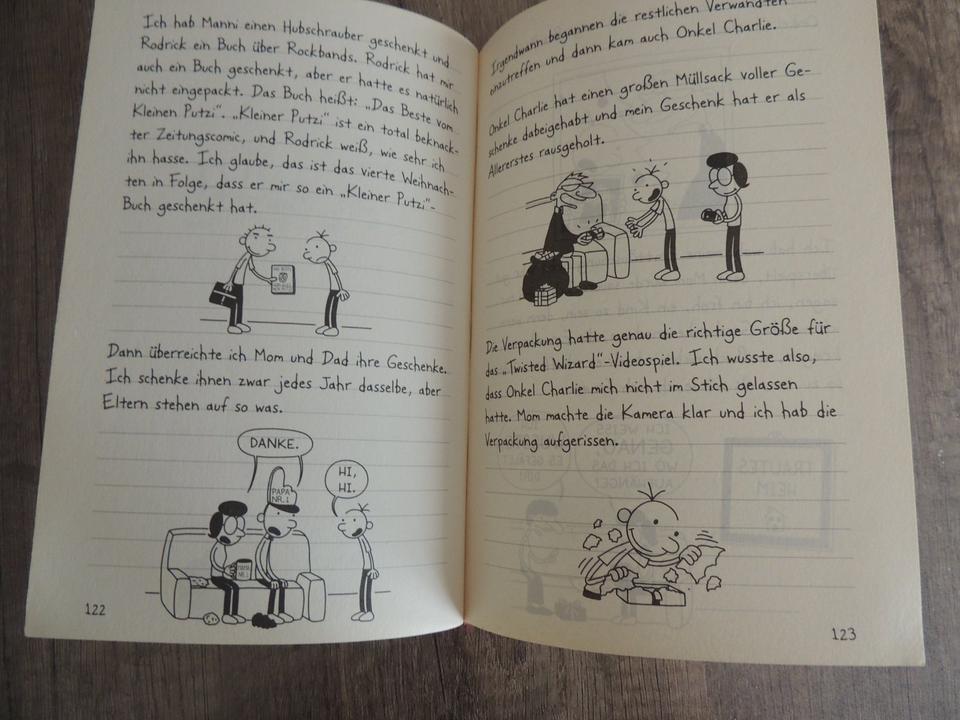 Ich hab Manni einen Hubschrauber geschenkt und
Rodrick ein Buch über Rockbands. Rodrick hat mir
auch ein Buch geschenkt, aber er hatte es natürlich
nicht eingepackt. Das Buch heißt: „Das Beste vom
Kleinen Putzi“. „Kleiner Putzi“ ist ein total beknack-
ter Zeitungscomic, und Rodrick weiß, wie sehr ich
ihn hasse. Ich glaube, das ist das vierte Weihnach-
ten in Folge, dass er mir so ein „Kleiner Putzi“-
Buch geschenkt hat.
Dann überreichte ich Mom und Dad ihre Geschenke.
Ich schenke ihnen zwar jedes Jahr dasselbe, aber
Eltern stehen auf so was.
DANKE.
PAPA
NR. 1
HI,
HI.
122
Irgendwann begannen die restlichen Verwandten
einzutreffen und dann kam auch Onkel Charlie.
Onkel Charlie hat einen großen Müllsack voller Ge-
schenke dabeigehabt und mein Geschenk hat er als
Allererstes rausgeholt.
Die Verpackung hatte genau die richtige Größe für
das „Twisted Wizard“-Videospiel. Ich wusste also,
dass Onkel Charlie mich nicht im Stich gelassen
hatte. Mom machte die Kamera klar und ich hab die
Verpackung aufgerissen.
123